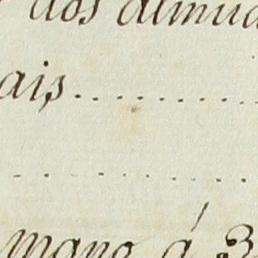 dos almud
ais..........
..........
mano á 3